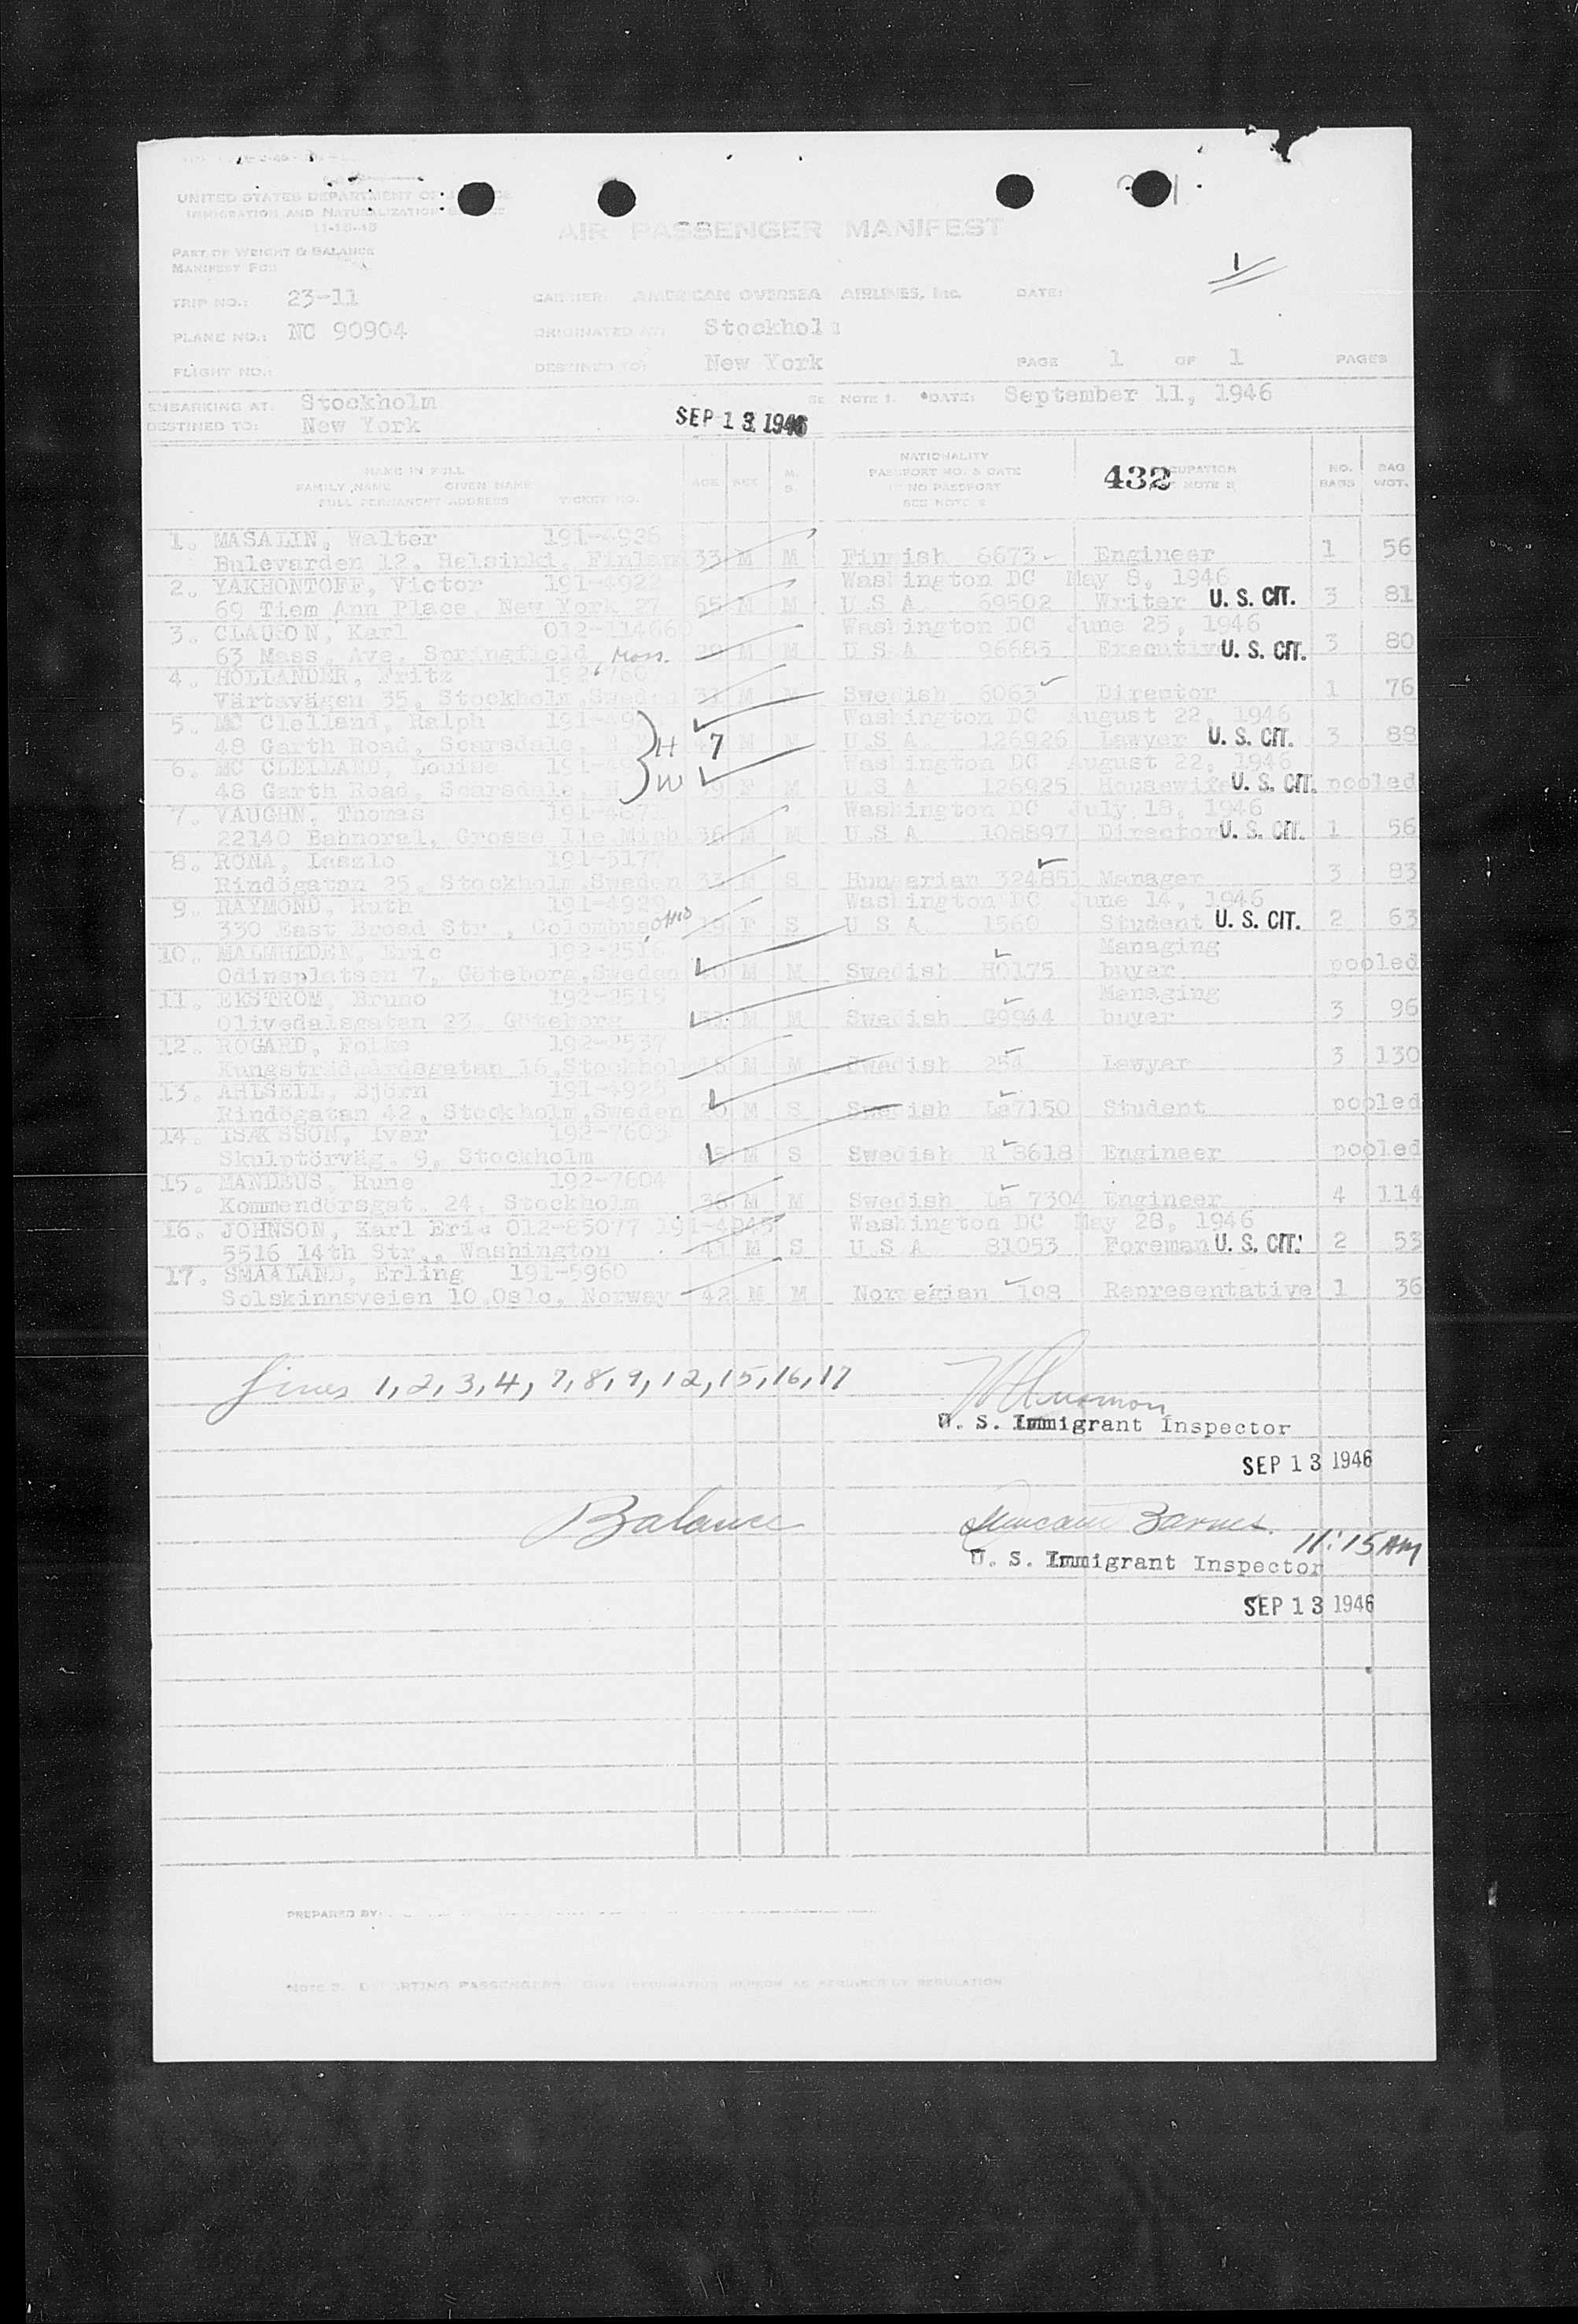 UNITED STATES DEPARTMENT OF
IMMIGRATION AND NATURALIZATION
11-15-45
AIR PASSENGER MANIFEST
PART OF WEIGHT & BALANCE
MANIFEST FOR
1
TRIP NO.: 23-11 CARRIER: AMERICAN OVERSEA AIRLINES, Inc. DATE:
PLANE NO.: NC 90904 ORIGINATED AT: Stockholm
FLIGHT NO.: DESTINED TO: New York PAGE 1 OF 1 PAGES
EMBARKING AT: Stockholm SEE NOTE 1. DATE: September 11, 1946
DESTINED TO: New York SEP 13 1946
NAME IN FULL
FAMILY NAME GIVEN NAME
FULL PERMANENT ADDRESS TICKET NO. AGE SEX M. S. NATIONALITY PASSPORT NO. & DATE IF NO PASSPORT SEE NOTE 2 432 NO. BAGS BAG WGT.
1. MASALIN, Walter 191-4926
Bulevarden 12, Helsinki, Finlan 33 M M Finnish 6673 Engineer 1 56
2. YAKHONTOFF, Victor 191-4922 Washington DC May 8, 1946
69 Tiem Ann Place, New York 27 65 M M U S A 69502 Writer U. S. CIT. 3 81
3. CLAUSON, Karl 012-114660 Washington DC June 25, 1946
63 Mass. Ave. Springfield, Mass. M M U S A 96685 Executive U. S. CIT. 3 80
4. HOLLANDER, Fritz 192-7607
Värtavägen 35, Stockholm, Sweden 31 M M Swedish 6063 Director 1 76
5. MC Clelland, Ralph Washington DC August 22, 1946
48 Garth Road, Scarsdal H 7 M M U.S A. 126926 Lawyer U. S. CIT. 3 88
6. MC CLELLAND, Louise Washington DC August 22, 1946
48 Garth Road, Scarsdale W F M U S A 126925 Housewife U. S. CIT. pooled
7. VAUGHN, Thomas Washington DC July 18, 1946
22140 Bahnoral, Grosse Ile Mich 36 M M U.S A 108897 Director U. S. CIT. 1 56
8. RONA, Laszlo 191-5177
Rindögatan 25, Stockholm, Sweden 33 M S Hungarian 324851 Manager 3 83
9. RAYMOND, Ruth 191-4929 Washington DC June 14, 1946
330 East Broad Str., Columbus, Ohio 19 F S U S A 1560 Student U. S. CIT. 2 63
10. MALMHEDEN, Eric 192-2516 Managing
Odinsplatsen 7, Göteborg, Sweden M M Swedish H0175 buyer pooled
11. EKSTROM, Bruno 192-2515 Managing
Olivedalsgatan 23 Göteborg M M Swedish G9944 buyer 3 96
12. ROGARD, Folke 192-2537
Kungsträdgårdsgatan 16, Stockhol M M Swedish 254 Lawyer 3 130
13. AHLSELL, Björn 191-4925
Rindögatan 42, Stockholm, Sweden M S Swedish La7150 Student pooled
14. ISAKSSON, Ivar 192-7605
Skulptörväg. 9, Stockholm M S Swedish R 8618 Engineer pooled
15. MANDEUS, Rune 192-7604
Kommendörsgat. 24, Stockholm 36 M M Swedish La 7304 Engineer 4 114
16. JOHNSON, Karl Eric 012-85077 191-4945 Washington DC May 28, 1946
5516 14th Str., Washington 41 M S U S A 81053 Foreman U. S. CIT. 2 53
17. SMAALAND, Erling 191-5960
Solskinnsveien 10, Oslo, Norway 42 M M Norwegian 198 Representative 1 36
Lines 1, 2, 3, 4, 7, 8, 9, 12, 15, 16, 17
U. S. Immigrant Inspector
SEP 13 1946
Balance Duncan Barnes. 11:15 AM
U. S. Immigrant Inspector
SEP 13 1946
PREPARED BY:
NOTE 2. DEPARTING PASSENGERS: GIVE INFORMATION HEREON AS REQUIRED BY REGULATION